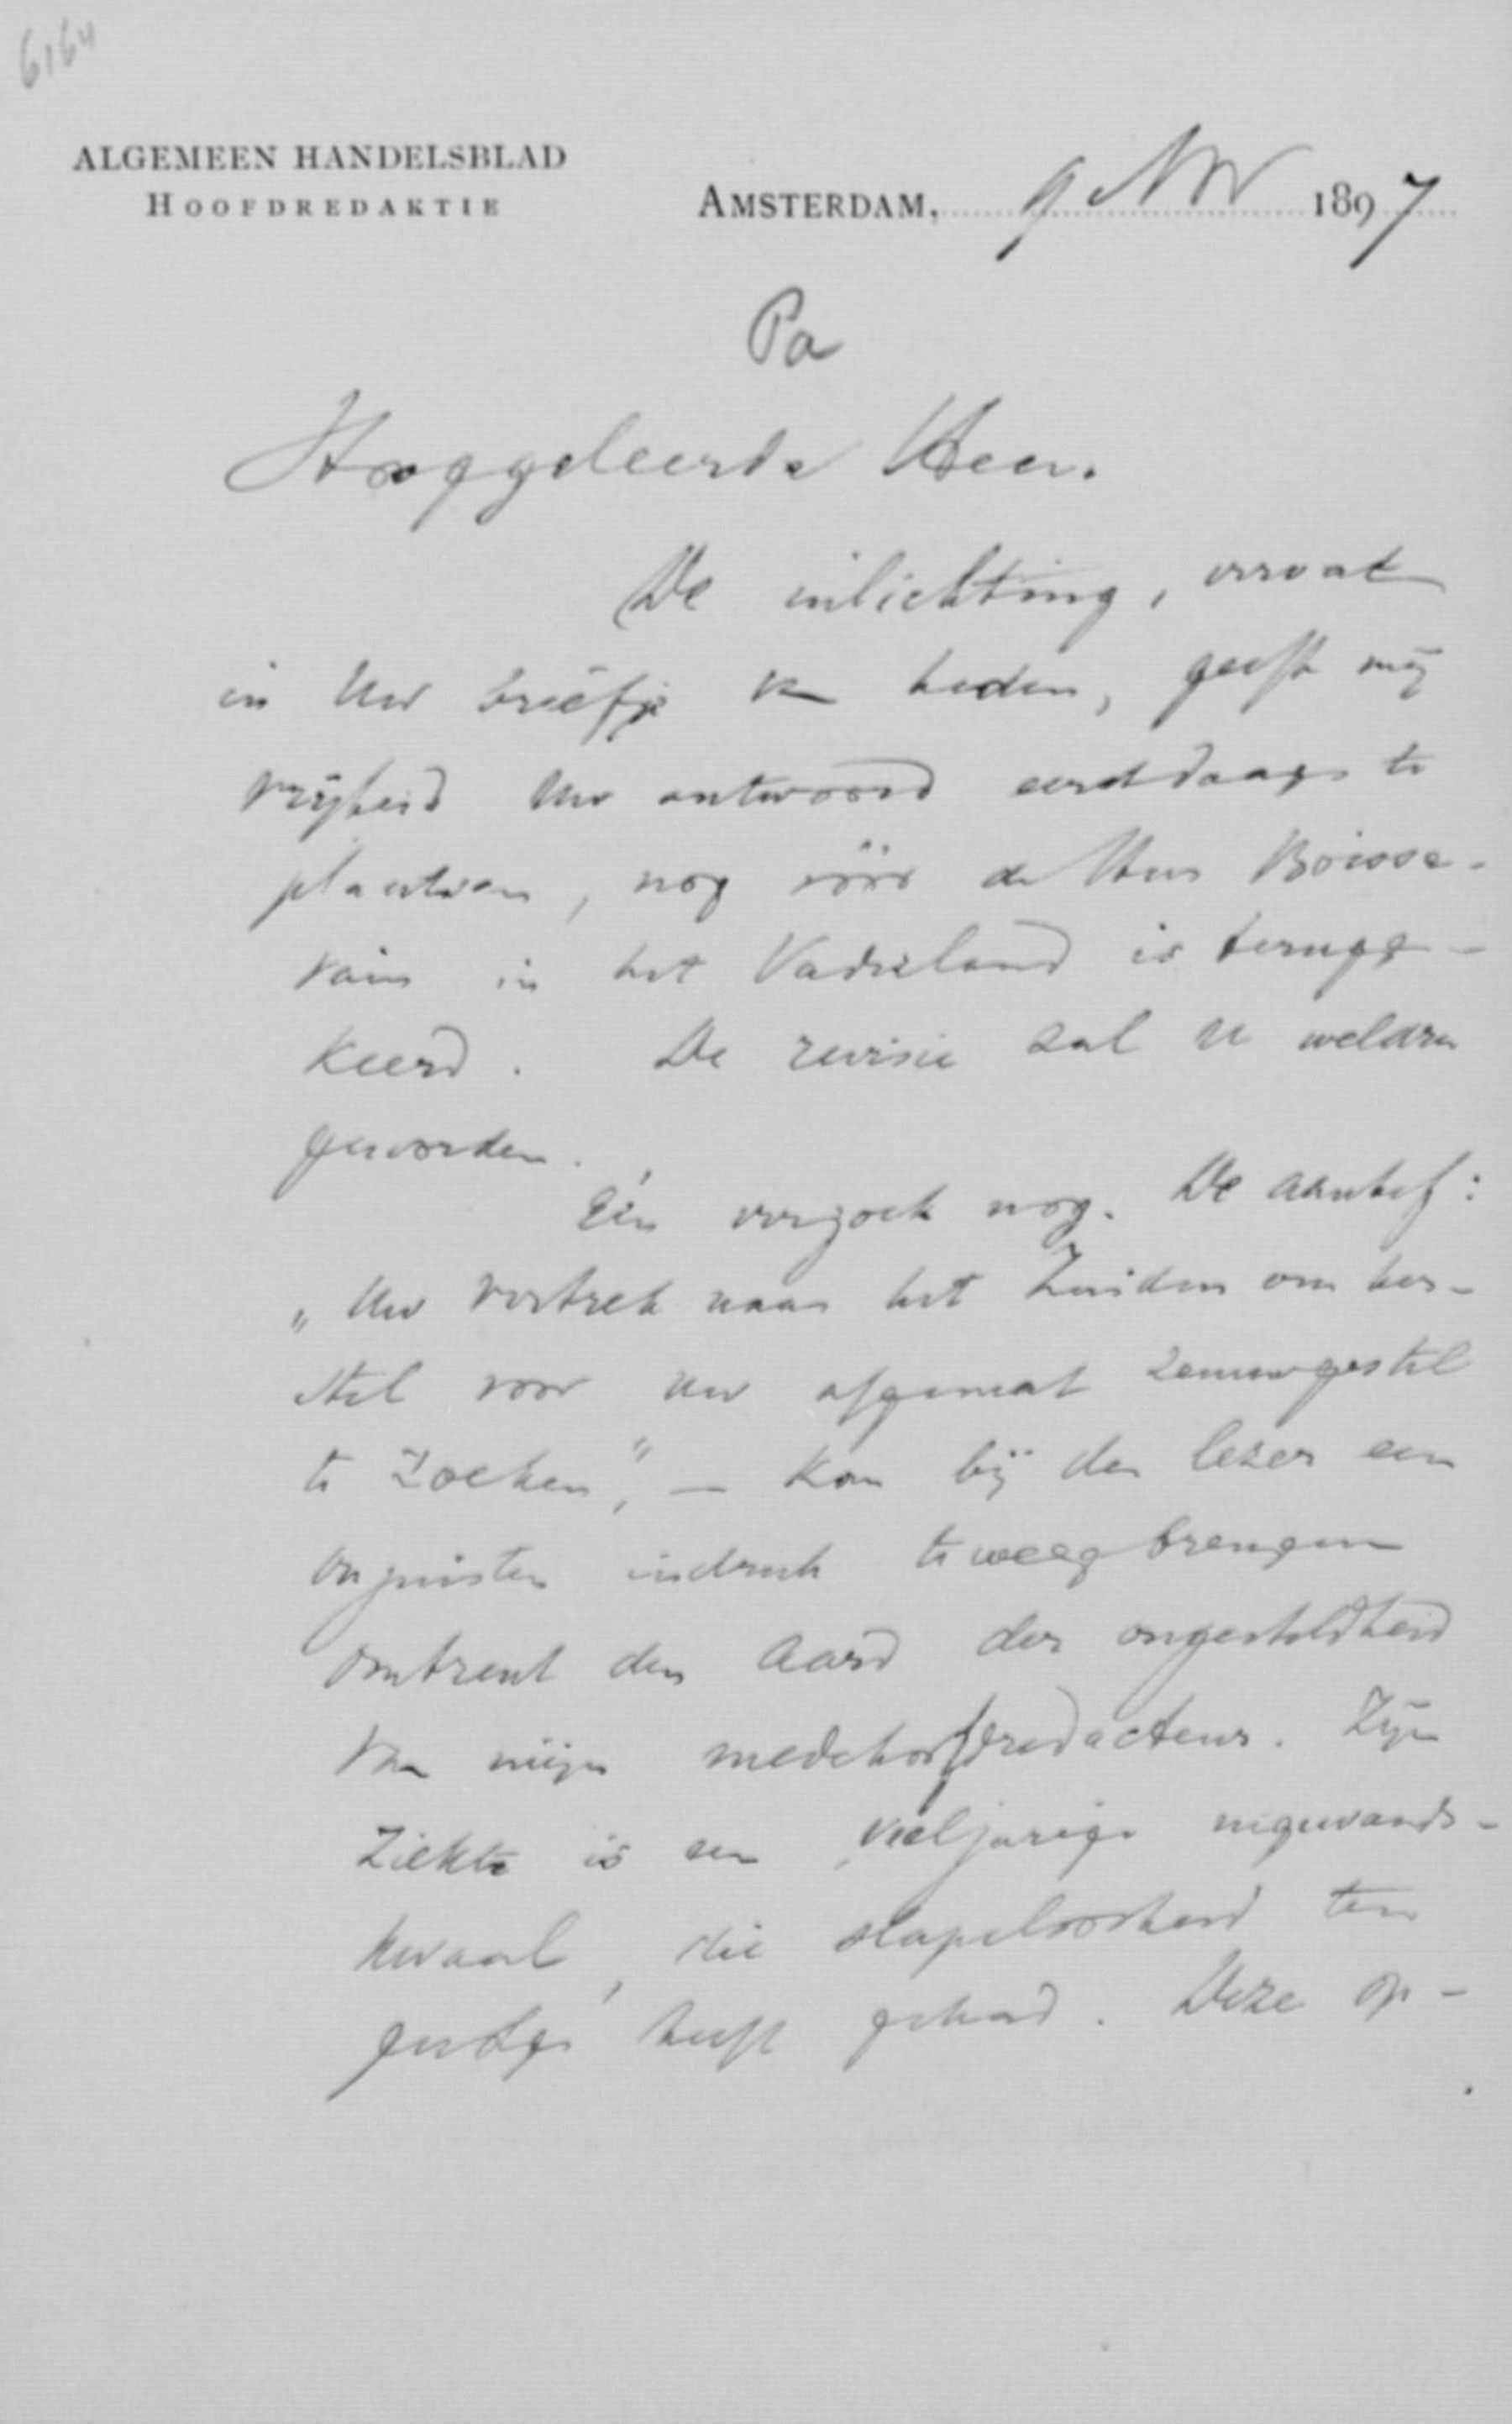 6164
ALGEMEEN HANDELSBLAD
HOOFDREDAKTIE
AMSTERDAM, 9 Nov 1897
Pa
Hooggeleerde Heer.
De inlichting, vervat
in Uw briefje van heden, geeft mij
vrijheid Uw antwoord eerstdaags te
plaatsen, nog vóór de Heer Boisse-
vain in het Vaderland is terugge-
keerd. De revisie zal U weldra
geworden.
Eén verzoek nog. De aanhef:
„Uw vertrek naar het Zuiden om her-
stel voor uw afgemat zenuwgestel
te zoeken", — kan bij den lezer een
onjuisten indruk teweegbrengen
omtrent den aard der ongesteldheid
van mijn medehoofdredacteur. Zijn
ziekte is een veeljarige ingewands-
kwaal, die slapeloosheid ten
gevolge heeft gehad. Deze op-